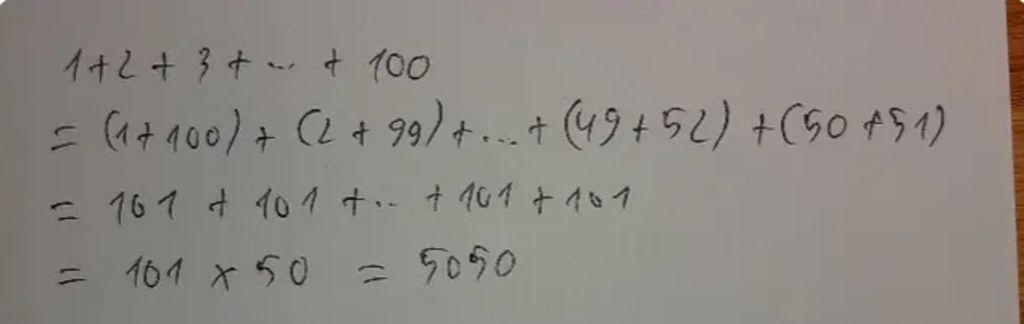 1+2+3+...+100
= (1+100)+(2+99)+...+(49+52)+(50+51)
= 101+101+...+101+101
= 101 × 50 = 5050